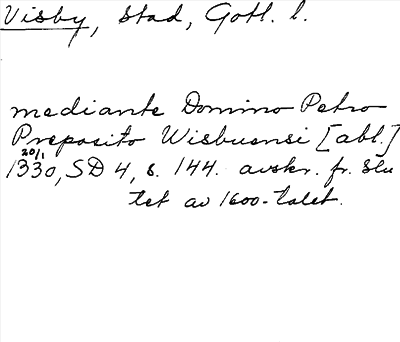 Visby, stad, Gotl. l.
mediante Domino Petro
Preposito Wisbuensi [abl.]
20/1
1330, SD 4, s. 144. avskr. fr. slu
tet av 1600-talet.